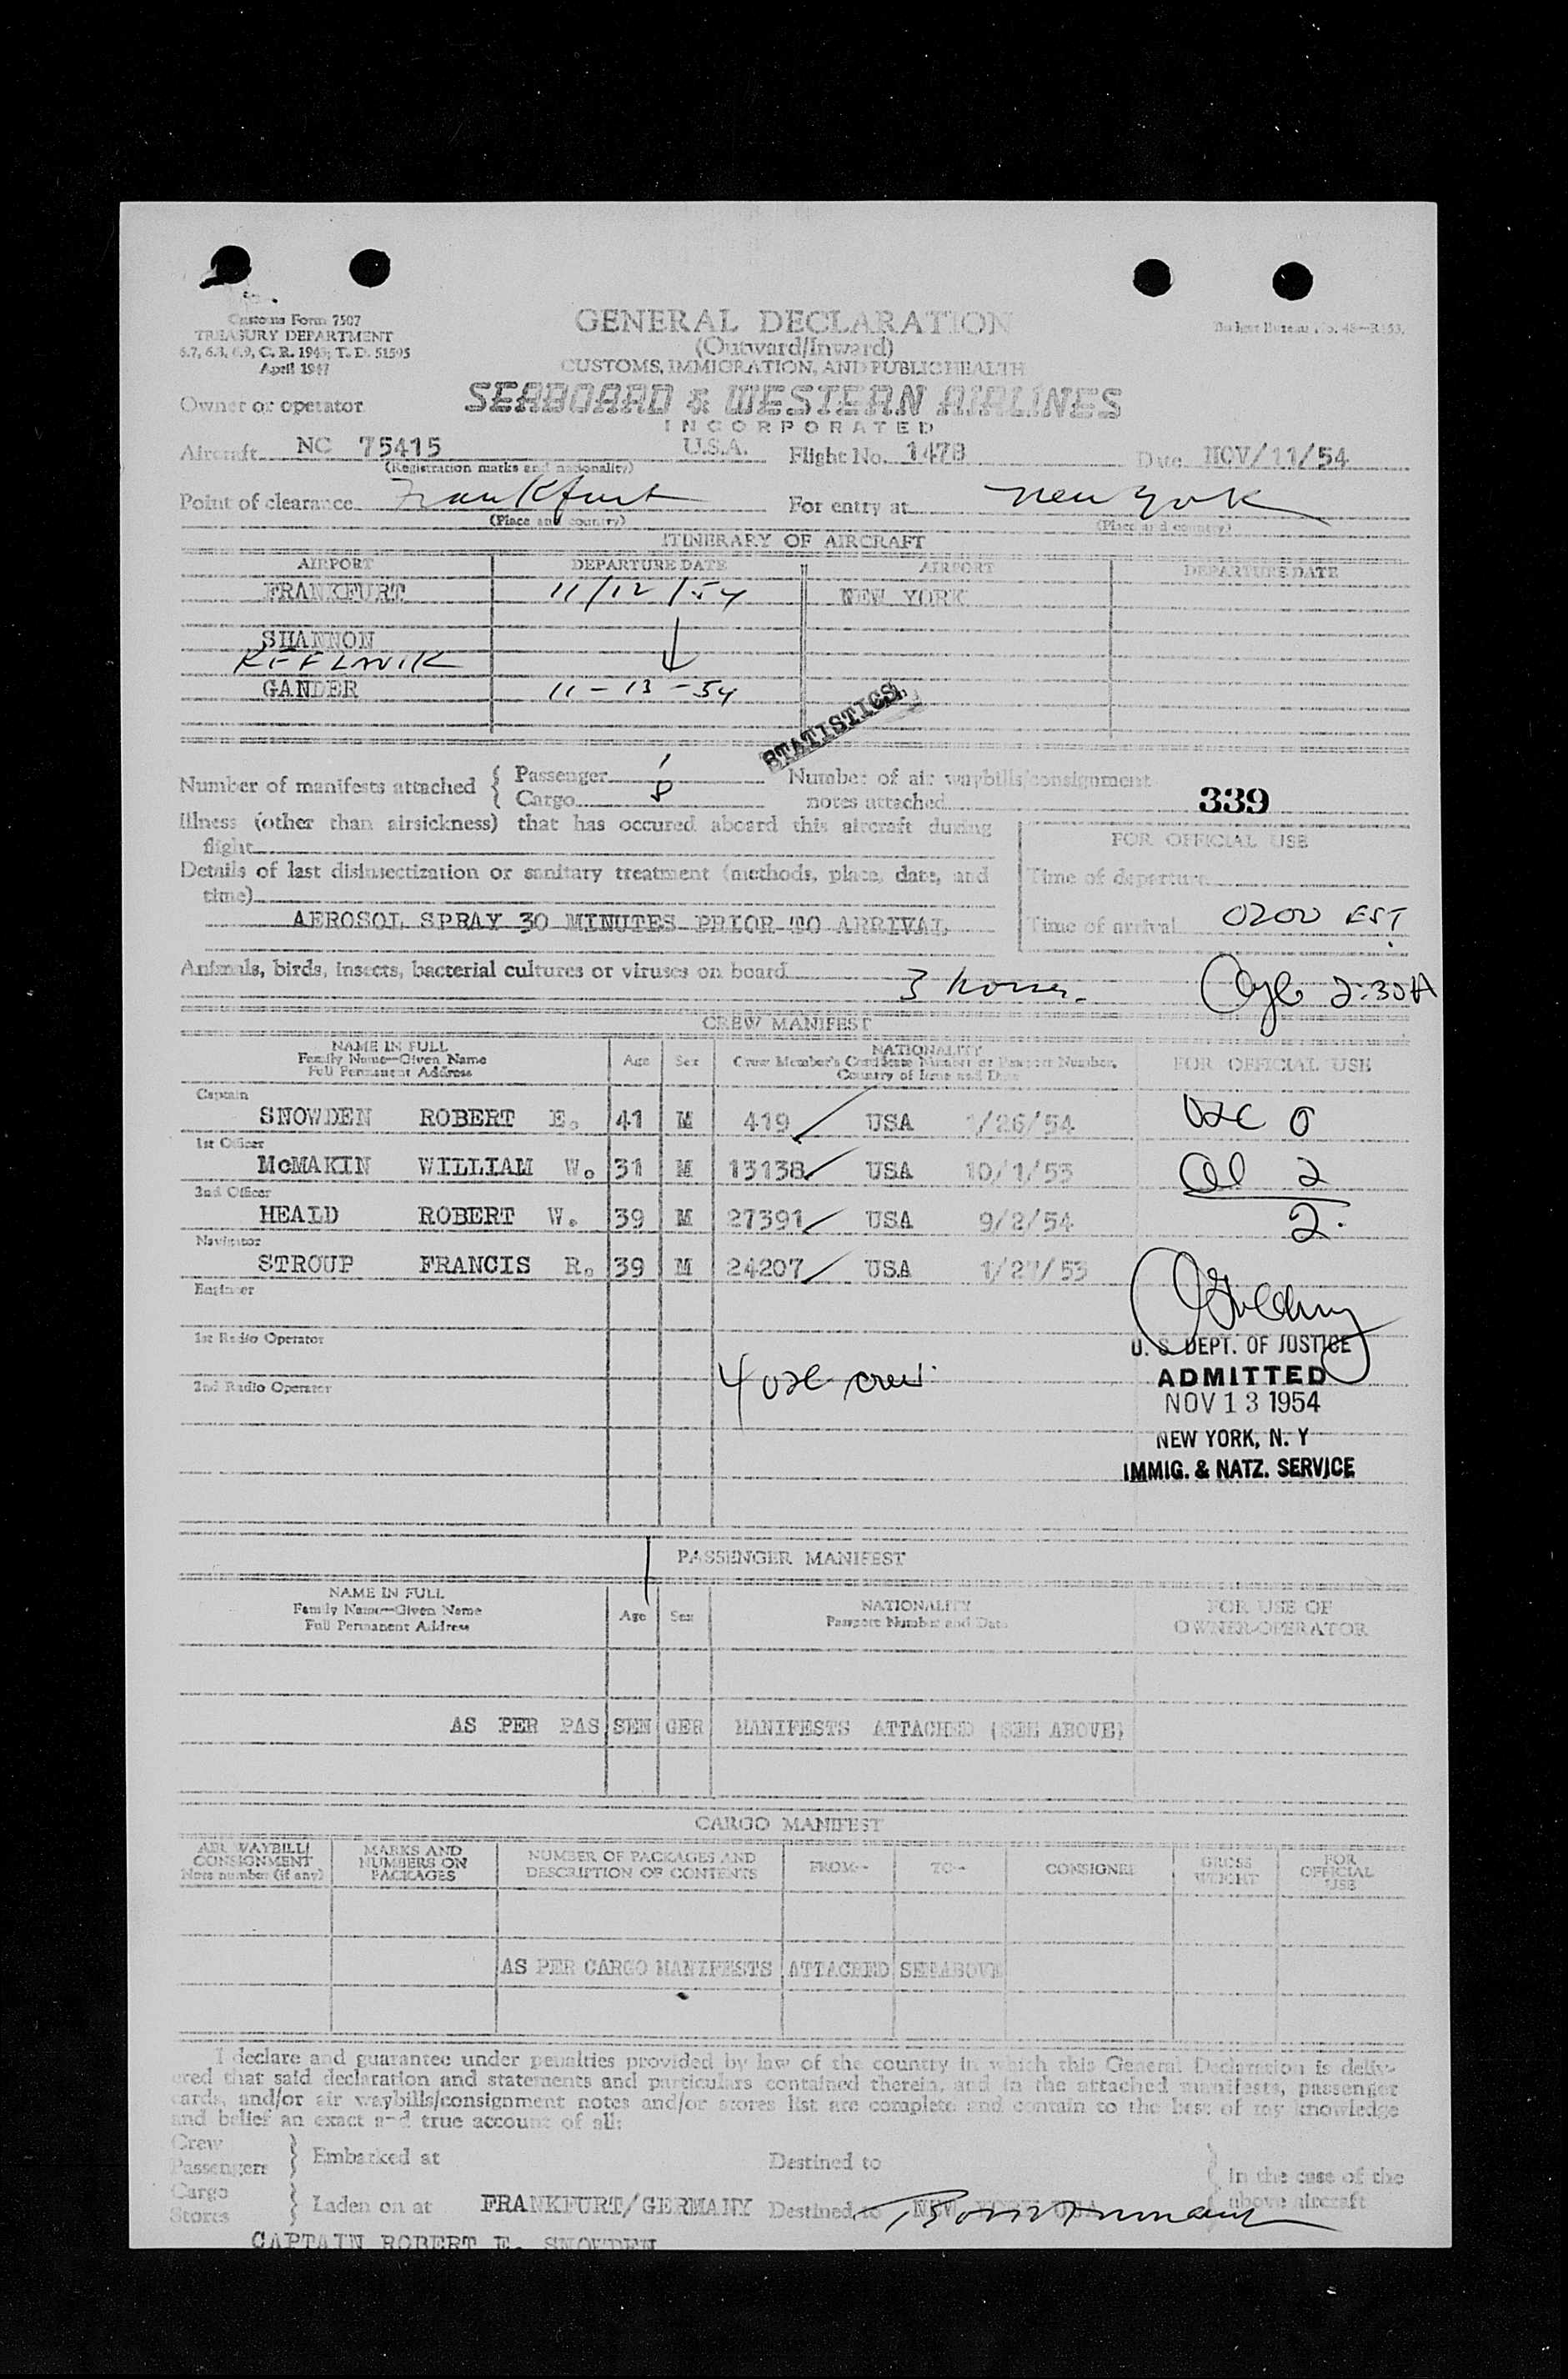 Customs Form 7507
TREASURY DEPARTMENT
6.7, 6.8, 6.9, C. R. 1943; T. D. 51595
April 1947
GENERAL DECLARATION
(Outward/Inward)
CUSTOMS, IMMIGRATION, AND PUBLIC HEALTH
Budget Bureau No. 48—R353.
Owner or operator
SEABOARD & WESTERN AIRLINES
INCORPORATED
Aircraft NC 75415 U.S.A. Flight No. 1478 Date NOV/11/54
(Registration marks and nationality)
Point of clearance Frankfurt For entry at New York
(Place and country) (Place and country)
ITINERARY OF AIRCRAFT
AIRPORT DEPARTURE DATE AIRPORT DEPARTURE DATE
FRANKFURT 11/12/54 NEW YORK
SHANNON
KEFLAVIK
GANDER 11-13-54
STATISTICS
Number of manifests attached { Passenger 1 Number of air waybills/consignment
Cargo 8 notes attached 339
Illness (other than airsickness) that has occured aboard this aircraft during
flight
FOR OFFICIAL USE
Details of last disinsectization or sanitary treatment (methods, place, date, and
time)
Time of departure
AEROSOL SPRAY 30 MINUTES PRIOR TO ARRIVAL
Time of arrival 0200 EST
Animals, birds, insects, bacterial cultures or viruses on board 3 2:30A
CREW MANIFEST
NAME IN FULL
Family Name—Given Name
Full Permanent Address
Age Sex
NATIONALITY
Crew Member's Certificate Number or Passport Number.
Country of Issue and Date
FOR OFFICIAL USE
Captain
SNOWDEN ROBERT E. 41 M 419 USA 1/26/54 USC 0
1st Officer
McMAKIN WILLIAM W. 31 M 13138 USA 10/1/53 Al 2
2nd Officer
HEALD ROBERT W. 39 M 27391 USA 9/2/54 2.
Navigator
STROUP FRANCIS R. 39 M 24207 USA 1/27/53
Engineer
1st Radio Operator
2nd Radio Operator
4 USC crew
U. S. DEPT. OF JUSTICE
ADMITTED
NOV 13 1954
NEW YORK, N. Y
IMMIG. & NATZ. SERVICE
PASSENGER MANIFEST
NAME IN FULL
Family Name—Given Name
Full Permanent Address
Age Sex
NATIONALITY
Passport Number and Date
FOR USE OF
OWNER-OPERATOR
AS PER PASSENGER MANIFESTS ATTACHED (SEE ABOVE)
CARGO MANIFEST
AIR WAYBILL/
CONSIGNMENT
Note number (if any)
MARKS AND
NUMBERS ON
PACKAGES
NUMBER OF PACKAGES AND
DESCRIPTION OF CONTENTS
FROM-- TO-- CONSIGNEE
GROSS
WEIGHT
FOR
OFFICIAL
USE
AS PER CARGO MANIFESTS ATTACHED SEE ABOVE
I declare and guarantee under penalties provided by law of the country in which this General Declaration is deliv-
ered that said declaration and statements and particulars contained therein, and in the attached manifests, passenger
cards, and/or air waybills/consignment notes and/or stores list are complete and contain to the best of my knowledge
and belief an exact and true account of all:
Crew
Passengers } Embarked at Destined to
Cargo
Stores } Laden on at FRANKFURT/GERMANY Destined to NEW YORK USA
In the case of the
above aircraft
CAPTAIN ROBERT E. SNOWDEN